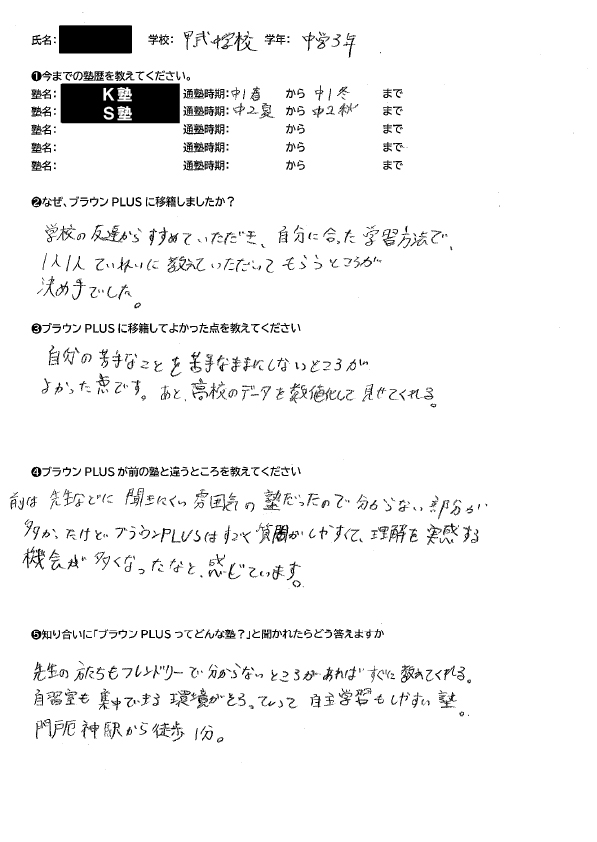 氏名: 学校: 甲武中学校 学年: 中学3年
❶今までの塾歴を教えてください。
塾名: K塾 通塾時期: 中1春 から 中1冬 まで
塾名: S塾 通塾時期: 中2夏 から 中2秋 まで
塾名: 通塾時期: から まで
塾名: 通塾時期: から まで
塾名: 通塾時期: から まで
❷なぜ、ブラウンPLUSに移籍しましたか?
学校の友達からすすめていただき、自分に合った学習方法で、
1人1人ていねいに教えていただいてもらうところが
決め手でした。
❸ブラウンPLUSに移籍してよかった点を教えてください
自分の苦手なことを苦手なままにしないところが
よかった点です。あと、高校のデータを数値化して見せてくれる。
❹ブラウンPLUSが前の塾と違うところを教えてください
前は先生などに聞きにくい雰囲気の塾だったので分からない部分が
多かったけどブラウンPLUSはすごく質問がしやすくて、理解を実感する
機会が多くなったなと、感じています。
❺知り合いに「ブラウンPLUSってどんな塾?」と聞かれたらどう答えますか
先生の方たちもフレンドリーで分からないところがあればすぐに教えてくれる。
自習室も集中できる環境がそろっていって自主学習もしやすい塾。
門戸厄神駅から徒歩1分。